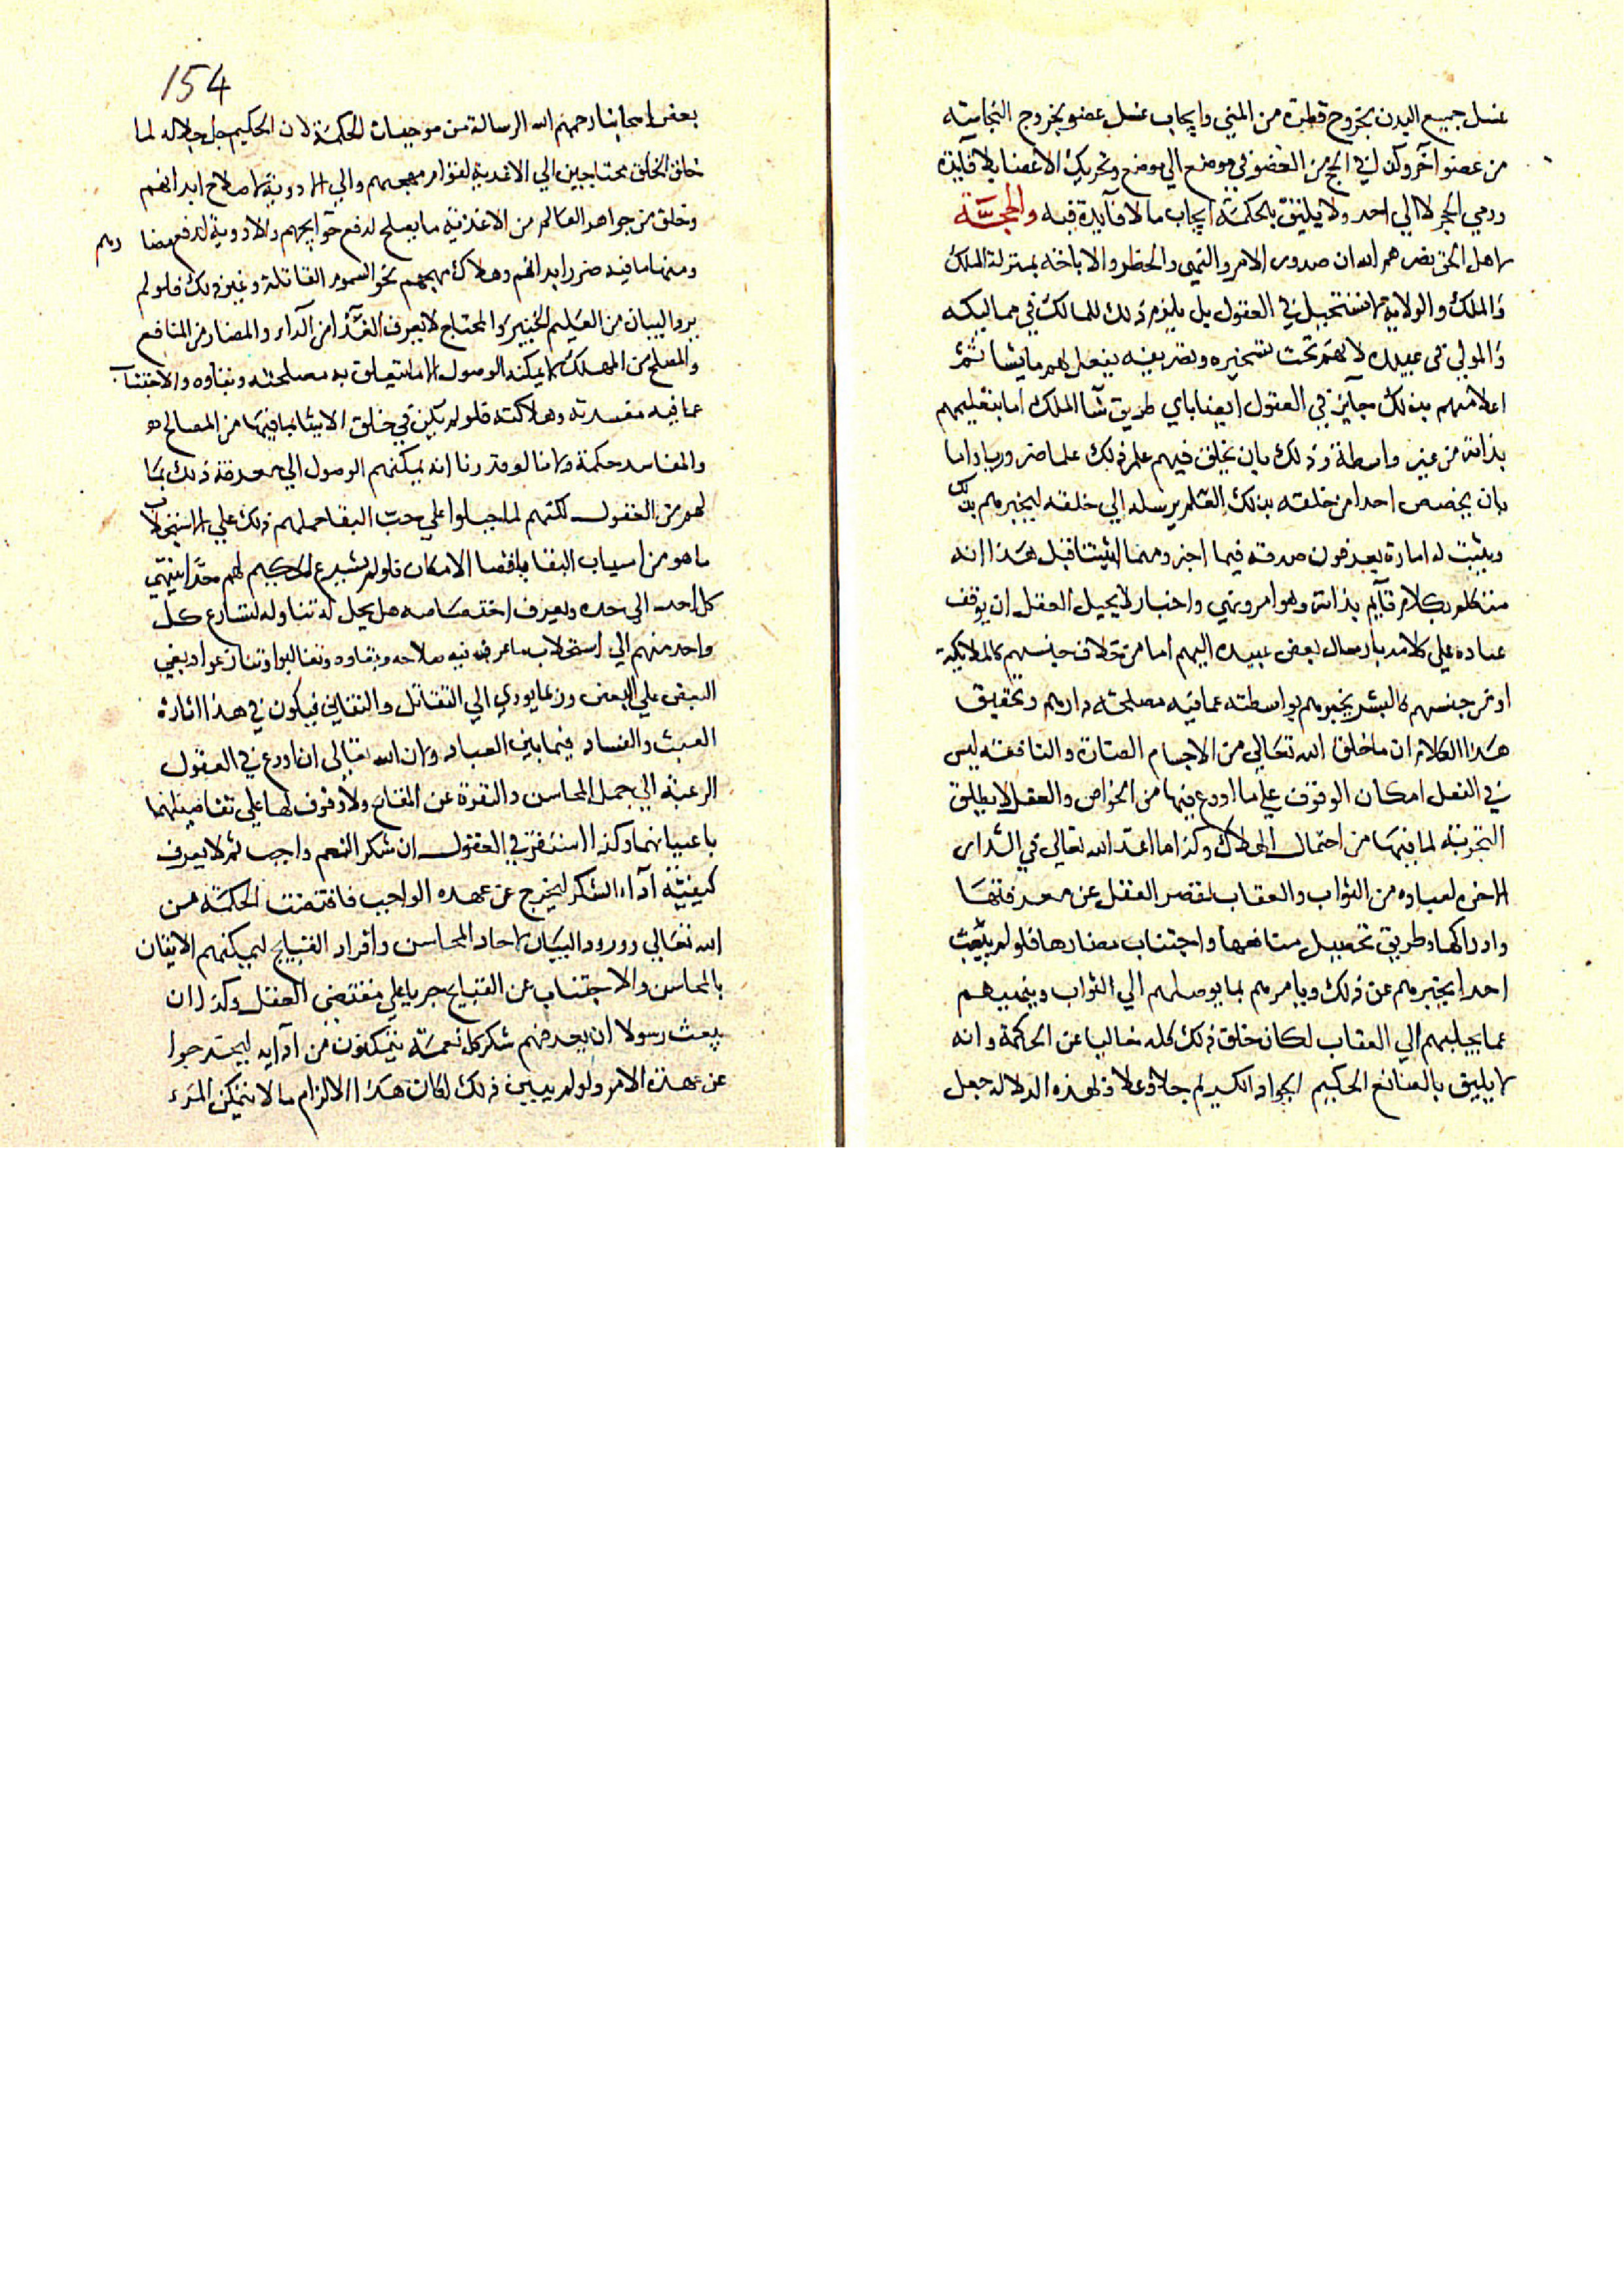 غسل جميع البدن بخروج قطرة من المني وايجاب غسل عضو بخروج النجاسة
من عضو آخر وكذلك في الحج من من موضع الي موضع وتحريك الاعضا بلا فآيدة
ورمي الحجر لا الي احد ولا يليق بالحكمة ايجاب ما لا فآيدة فيه والحجة
لاهل الحق نصرهم الله ان صدور الامر والنهي والحظر والاباحة بمنزلة الملك
والملك والولاية لا مستحيل في العقول بل يلزم ذلك للمالك في مماليكه
والمولي في عبيده لانهم تحت تسخيره وتصريفه يفعل بهم ما يشا ثم
اعلامهم بذلك جآيز في العقول ايضا باي طريق شآ الملك اما بتعليمهم
بذاته من غير واسطة وذلك بان يخلق فيهم علم ذلك علما ضروريا واما
بان يخصص احدا من خلقه بذلك العلم يرسله الي خلقه ليخبرهم بذلك
ويثبت له امارة يعرفون صدقه فيما اخبر ومهما اثبتنا قبل هذا انه
متكلم بكلام قآيم بذاته وهو امر ونهي واخبار لا يحيل العقل ان يوقف
عباده علي كلامه بارسال بعض عبيده اليهم اما من خلاف جنسهم كالملايكة
او من جنسهم كالبشر يخبرهم بواسطته عما فيه مصلحة دارهم وتحقيق
هذا الكلام ان ما خلق الله تعالي من الاجسام الضارة والنافعة ليس
في العقل امكان الوقوف علي ما اودع فيها من الخواص والعقل لا يطلق
التجربة لما فيها من احتمال الهلاك وكذا ما اعد الله تعالي في الدار
الاخرة لعباده من الثواب والعقاب تقصر العقل عن معرفتها
وادراكها وطريق تحصيل منافعها واجتناب مضارها فلو لم يبعث
احدا يخبرهم عن ذلك ويامرهم بما يوصلهم الي الثواب وينهيهم
عما يجلبهم الي العقاب لكان خلق ذلك كله خاليا عن الحكمة وانه
لا يليق بالصانع الحكيم الجواد الكريم جلا وعلا ولهذه الدلالة جعل
154
بعض اصحابنا رحمهم الله الرسالة من موجبات الحكمة لان الحكيم جل جلاله لما
خلق الخلق محتاجين الي الاغذية لقوام مهجهم والي الادوية لاصلاح ابدانهم
وخلق من جواهر العالم من الاغذية ما يصلح لدفع حوآيجهم والادوية لدفع
ومنها ما فيه ضرر ابدانهم وهلاك مهجهم نحو السموم القاتلة وغير ذلك فلو لم
يرد البيان من العليم الخبير والمحتاج لا يعرف الغذا من الدآء والمضار من المنافع
والمصلح من المهلك لا يمكنه الوصول الا ما يتعلق به مصلحته وبقاوه والاجتناب
عما فيه مفسدته وهلاكته فلو لم يكن في خلق الاشيا بما فيها من المصالح
والمفاسد حكمة ولانا لو قدرنا انه يمكنهم الوصول الي معرفة ذلك بما
لهم من العقول لكنهم لما جبلوا علي حب البقا حملهم ذلك علي استجلاب
ما هو من اسباب البقا باقصا الامكان فلو لم يشرع لهم حدا ينتهي
كل احد الي حده ويعرف اختصاصه هل يحل له تناوله لتسارع كل
واحد منهم الي استجلاب ما عرف فيه صلاحه وبقاوه وتغالبوا وتنازعوا وبغي
البعض علي البعض وربما يودي الي التقاتل والتفاني فيكون في هذا اثارة
العبث والفساد فيما بين العباد ولان الله تعالي ان اودع في العقول
الرغبة الي جمل المحاسن والنفرة عن المقابح ولا وقوف لها علي تفاصيلهما
باعيانهما وكذا استقر في العقول ان شكر النعم واجب ثم لا يعرف
كيفية آداء الشكر ليخرج عن عهده الواجب فاقتضت الحكمة من
الله تعالي ورود البيان لاحاد المحاسن وافراد القبايح ليمكنهم الاتيان
بالمحاسن والاجتناب عن القبايح جريا علي مقتضي العقل وكذا ان
يبعث رسولا ان يعرفهم شكر كل نعمة يتمكنون من آدآيه ليخرجوا
عن عهدة الامر ولو لم يبين ذلك لكان هذا الالزام ما لا يتمكن المرء